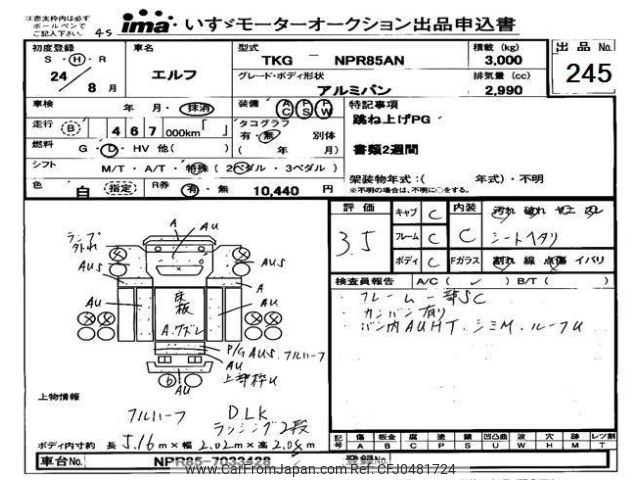 注意 赤太枠内は必ず
ボールペンで
ご記入下さい。
45
ima いすゞモーターオークション出品申込書
初度登録
S・H・R
24
8 月
車名
エルフ
型式
TKG NPR85AN
グレード・ボディ形状
アルミバン
積載 (kg)
3,000
排気量 (cc)
2,990
出品 No.
245
車検
年 月・抹消
装備
AC PS PW
走行 (B) 4 6 7 000km「 」
タコグラフ
有・無 別体
( 年 月)
燃料
G・D・HV 他( )
シフト
M/T・A/T・特殊 (2ペダル・3ペダル)
色
白 (指定)
R券
有・無
10,440 円
特記事項
跳ね上げPG
書類2週間
架装物年式:( 年式)・不明
※不明の場合は、不明に○をする。
評価
3.5
キャブ C
フレーム C
ボディ C
内装
C
汚れ 破れ
シートヘタリ
Fガラス
割れ 線 点傷 イバリ
検査員報告
A/C( ✓ ) B/T( )
・フレーム一部SC
・カンバン有り
・バン内AUHT.シミM.ルーフU
ランプ
外れ
A
AU
AUS
AUS
A
AU
AU
床板
A.クズレ
P/G AUS.フルハーフ
AU
上部枠U
AU
上物情報
フルハーフ
DLK
ラッシング2段
ボディ内寸約 長 5.16 m × 幅 2.02 m × 高 2.08 m
記号
傷 A
板金 B
腐 C
塗 P
錆 S
凹凸曲 U
波 W
穴 H
跡 M
レツ割 T
車台No.
NPR85-7033428
登録No.
www.CarFromJapan.com Ref: CFJ0481724